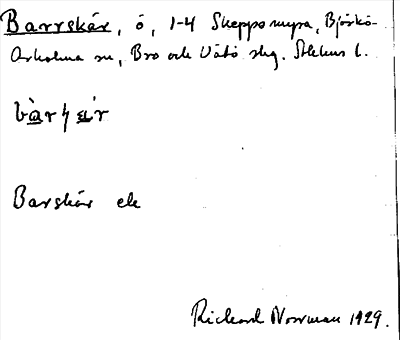 Barrskär, ö, 1-4 Skeppsmyra, Björkö-
Arholma sn, Bro och Vätö slg. Sthlms l.
Barskär ek
Richard Norrman 1929.